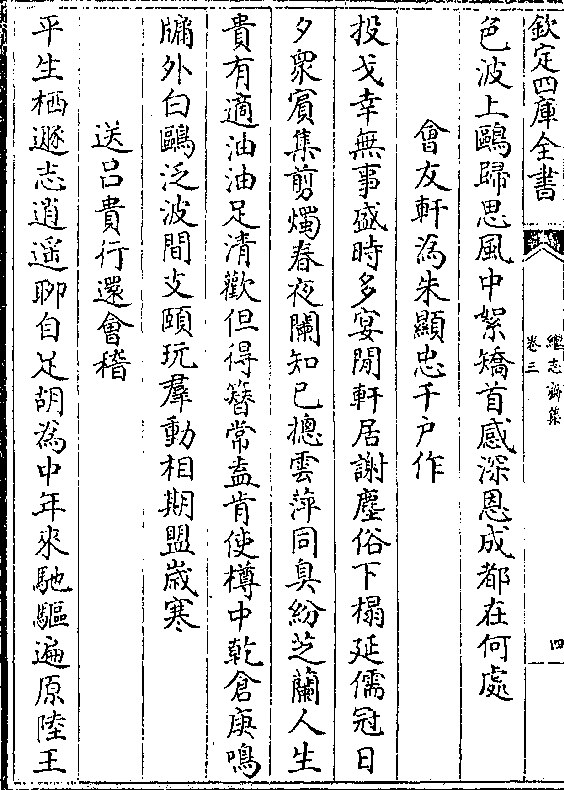 欽定四庫全書
繼志齋集
卷三
四
色波上鷗歸思風中絮矯首感深恩成都在何處
會友軒為朱顯忠千戶作
投戈幸無事盛時多宴閒軒居謝塵俗下榻延儒冠日
夕衆賓集剪燭春夜闌知已摠雲萍同臭紛芝蘭人生
貴有適油油足清歡但得簪常盍肯使樽中乾倉庚鳴
牗外白鷗泛波間支頤玩羣動相期盟歲寒
送吕貴行還會稽
平生栖遯志逍遥聊自足胡為中年來馳驅遍原陸王